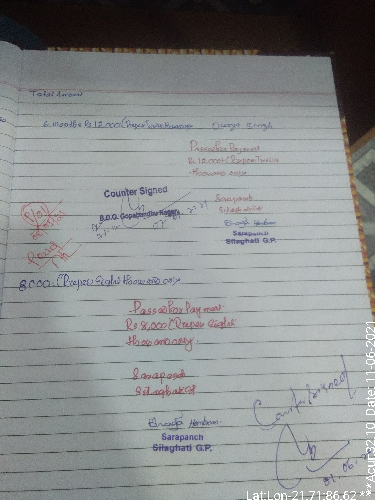 Total Amount
6 months Rs 12,000/- (Rupees Twelve thousand
Passed for Payment
Rs 12,000/- (Rupees Twelve
thousand only
Counter Signed
B.D.O. Gopabandhu Nagar
Sarapanch
Sarapanch
Silaghati G.P.
Paid
8,000/- (Rupees Eight thousand only
Passed for Payment
Rs 8,000/- (Rupees Eight
thousand only.
Sarapanch
Silaghati GP
Sarapanch
Silaghati G.P.
Counter signed
Lat Lon-21.71:86.62 ***Acur:32.10 Date: 11-06-2021